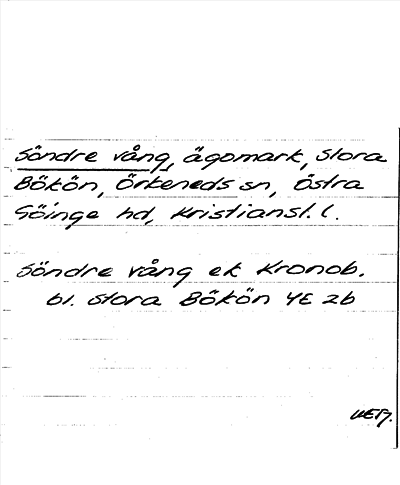 Söndre vång, ägomark, Stora
Bökön, Örkeneds sn, Östra
Göinge hd, Kristianst. l.
Söndre vång ek Kronob.
bl. Stora Bökön 4E 2b